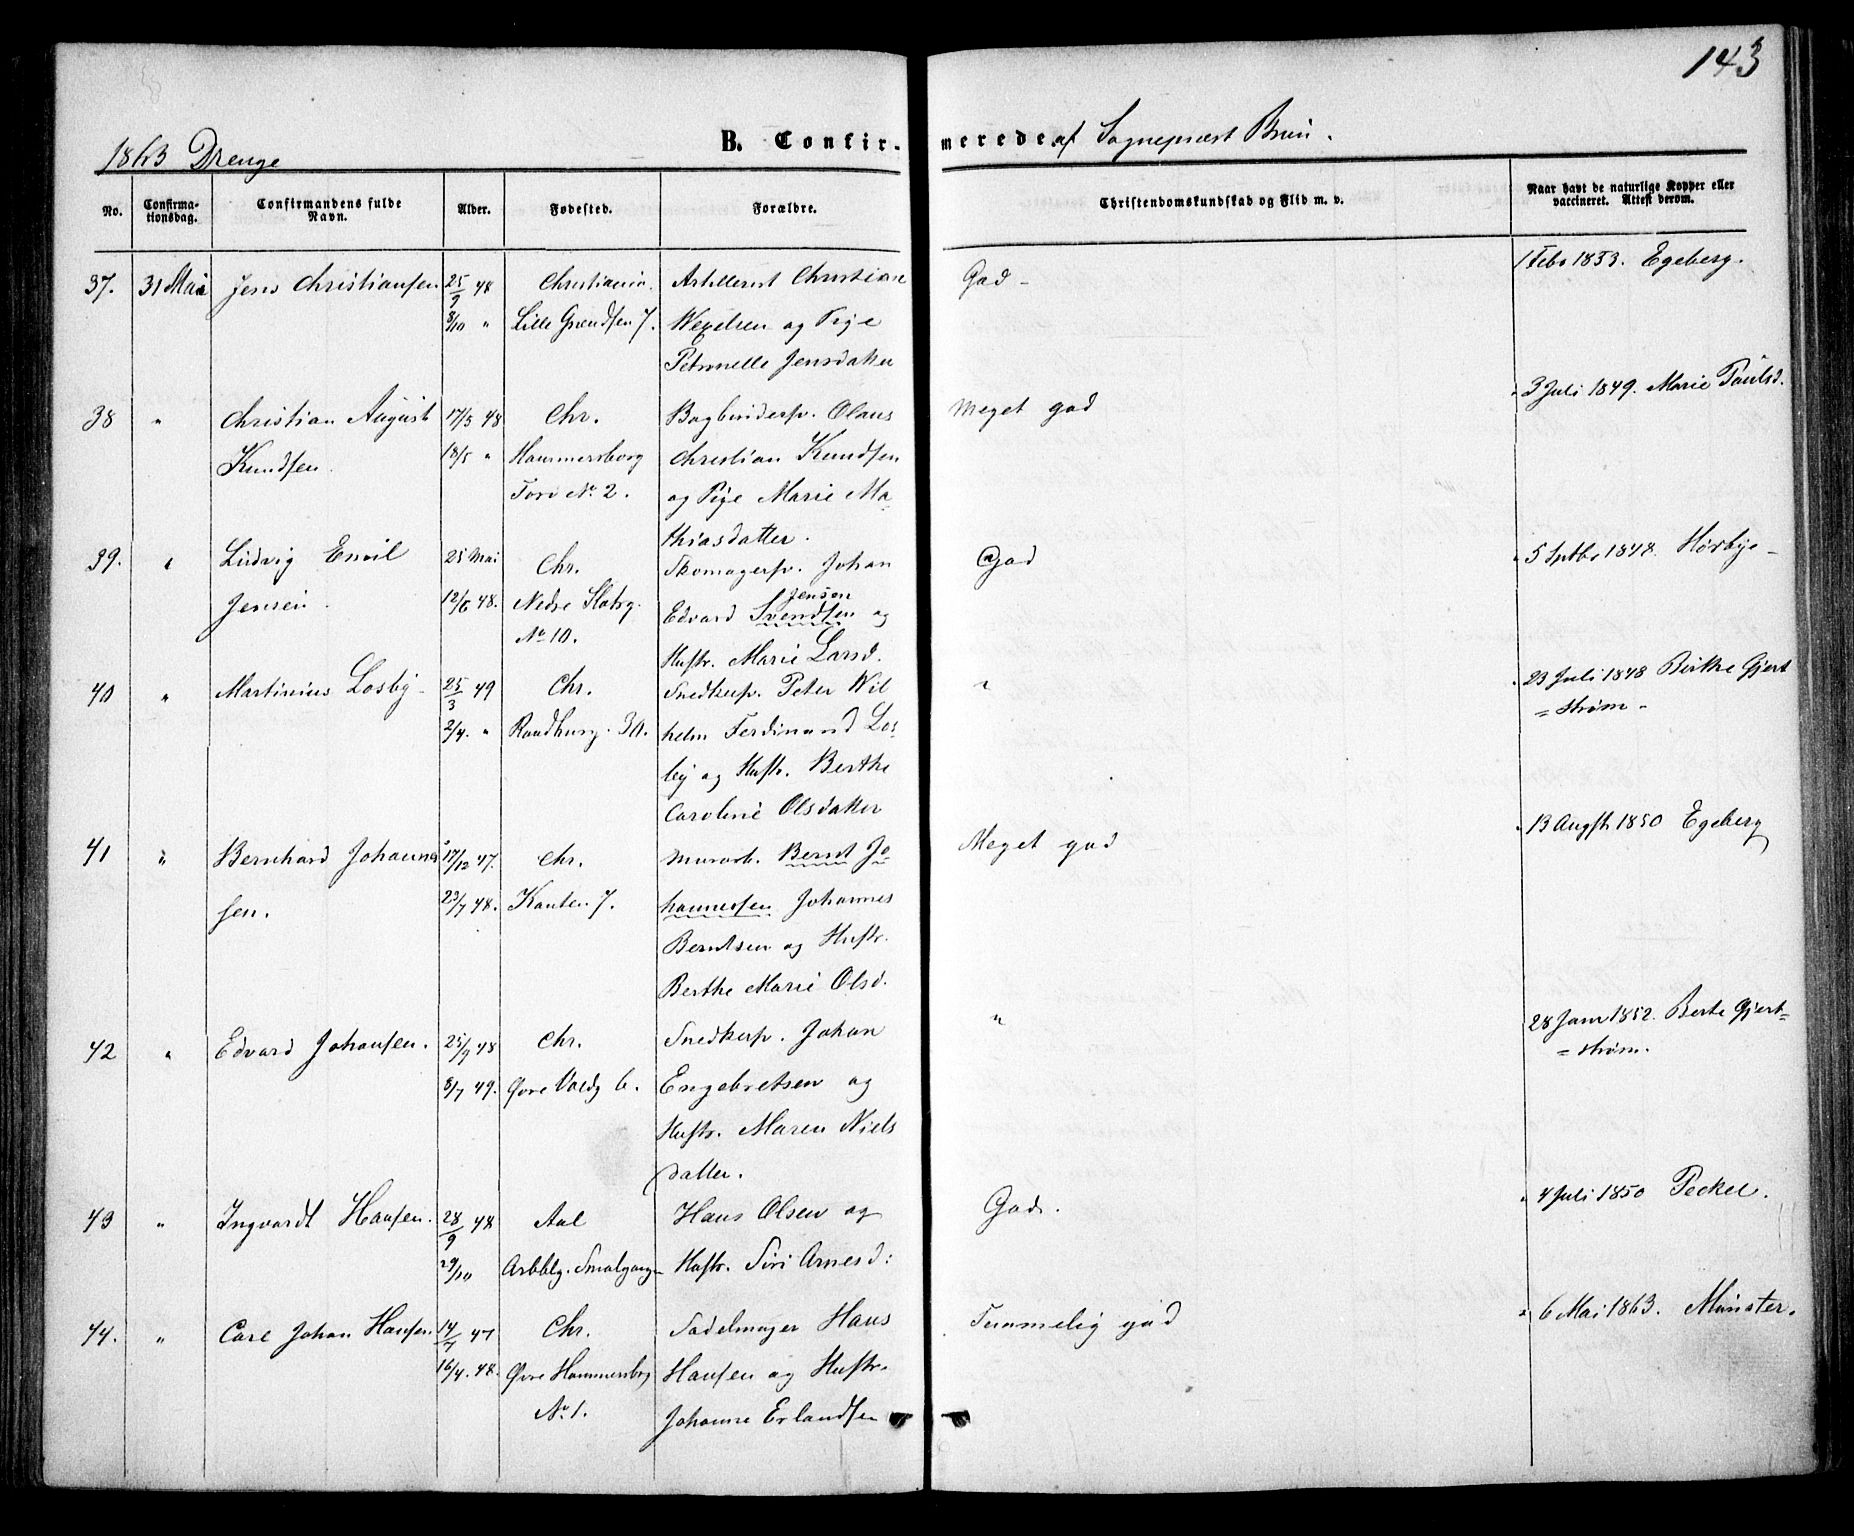 143
1863 Drenge
B. Confirmerede af Sognepræst Brun.
No.
Confirmationsdag.
Confirmandens fulde Navn.
Alder.
Fødested.
Forældre.
Christendomskundskab og Flid m. v.
Naar havt de naturlige Kopper eller vaccineret. Attest derom.
37. 31 Mai Jens Christiansen 25/9 48 Christiania. Artillerist Christian God - 1 Febr 1853. Egeberg.
8/10 " Lille Grændsen 7. Wexelsen og Pige
Petronelle Jensdatter
38 " Christian August 17/3 48 Chr. Bogbindersv. Olaus Meget god 3 Juli 1849. Marie Paulsd.
Knudsen. 18/5 " Hammersborg Christian Knudsen
Torv No 2. og Pige Marie Ma-
thiasdatter.
39. " Ludvig Emil 25 Mai Chr. Skomagersv. Johan God 5 Sptbr 1848. Hørbye -
Jensen. 12/6 48. Nedre Slotsg. Edvard Svendsen Jenson og
No 10. Hustr. Marie Larsd.
40 " Martinius Losby - 25/3 49 Chr. Snedkersv. Peter Wil " 23 Juli 1848 Birthe Gjert
2/4. " Raadhusg. 30. helm Ferdinand Los- = strøm -
by og Hustr. Berthe
Caroline Olsdatter
41 " Bernhard Johannes 17/12 47. Chr. Murarb. Bernt Jo Meget god 13 Augst 1850 Egeberg
sen. 23/7 48. Kanten 7. hannessen Johannes
Berntsen og Hustr.
Berthe Marie Olsd.
42 " Edvard Johansen. 25/9 48 Chr. Snedkersv. Johan " 28 Janr 1852. Berte Gjert-
8/7 49. Øvre Voldg 6. Engebretsen og = strøm.
Hustr. Maren Niels
datter.
43 " Ingvardt Hansen. 28/9 48 Aal Hans Olsen og God. 4 Juli 1850 Peckel.
29/10 Arbblg. Smalgangen Hustr. Siri Arnesd:
44. " Carl Johan Hansen. 14/7 47 Chr. Sadelmager Hans Temmelig god 6 Mai 1863. Münster.
16/4. 48. Øvre Hammersborg Hansen og Hustr.
No 1. Johanne Erlandsen